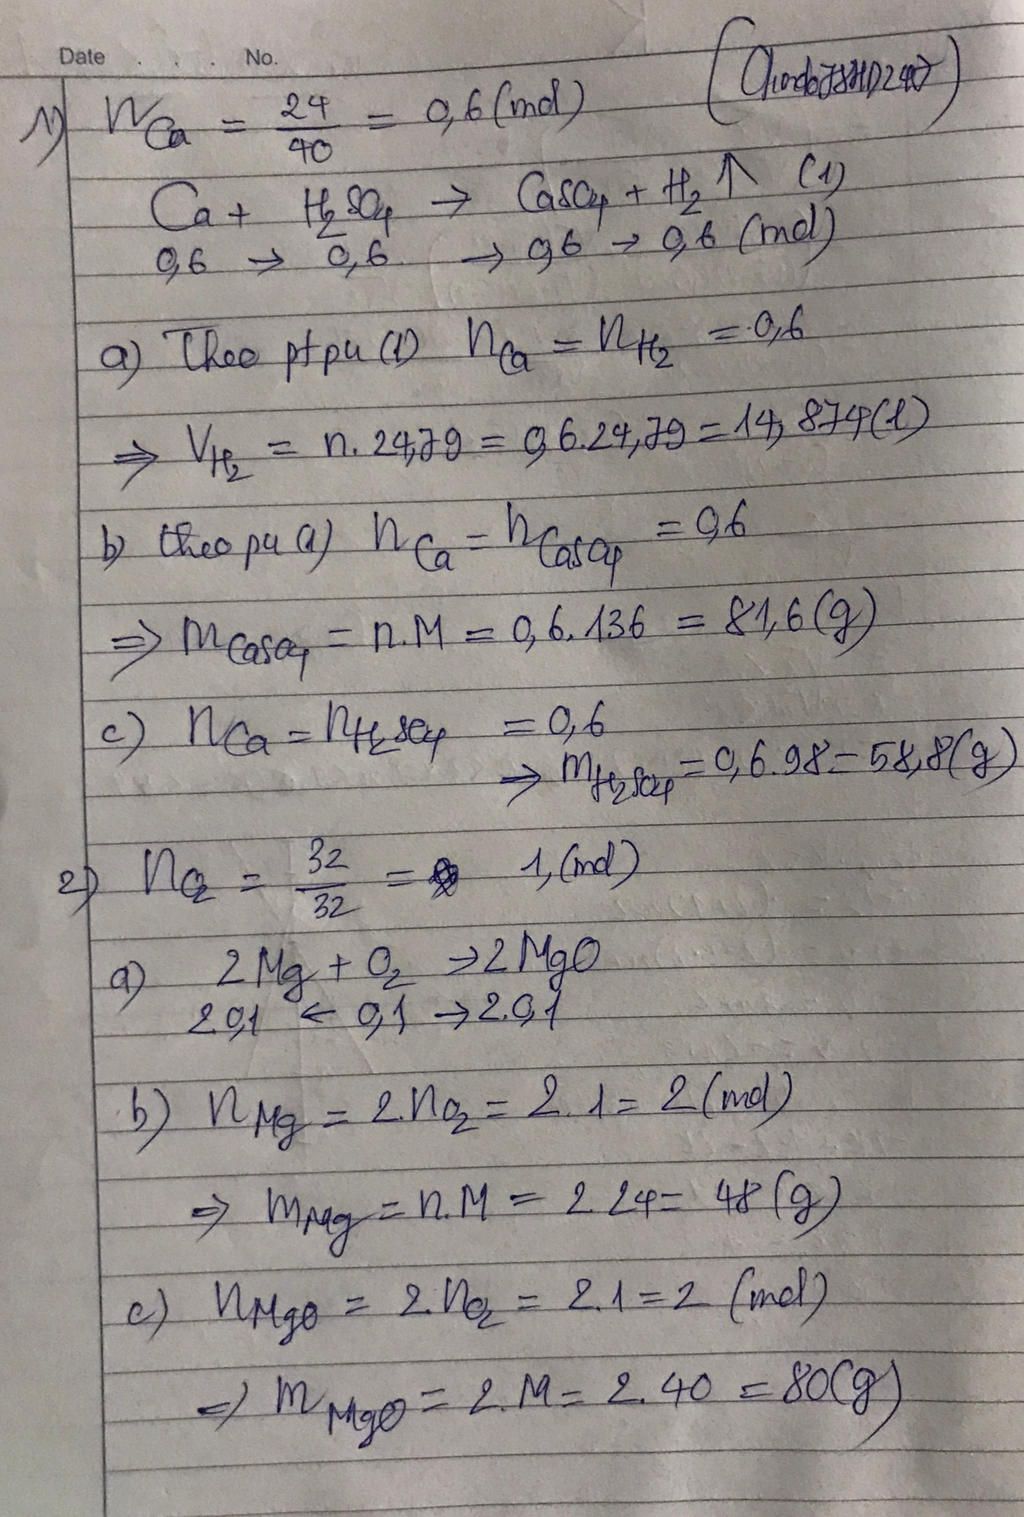 Date . . . . No.
1) nCa = 24/40 = 0,6 (mol)
Ca + H2SO4 → CaSO4 + H2 ↑ (1)
0,6 → 0,6 → 0,6 → 0,6 (mol)
a) Theo ptpu (1) nCa = nH2 = 0,6
⇒ VH2 = n. 24,79 = 0,6.24,79 = 14,874(l)
b) theo pu (1) nCa = nCaSO4 = 0,6
⇒ mCaSO4 = n.M = 0,6.136 = 81,6(g)
c) nCa = nH2SO4 = 0,6
⇒ mH2SO4 = 0,6.98 = 58,8(g)
2) nO2 = 32/32 = 1,(mol)
a) 2Mg + O2 → 2MgO
2.0,1 ← 0,1 → 2.0,1
b) nMg = 2.nO2 = 2.1 = 2 (mol)
⇒ mMg = n.M = 2.24 = 48 (g)
c) nMgO = 2.nO2 = 2.1 = 2 (mol)
⇒ mMgO = 2.M = 2.40 = 80(g)